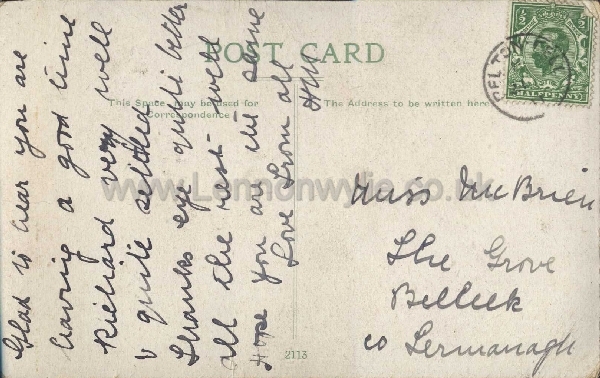 POST CARD
This Space may be used for
Correspondence
The Address to be written here
½ ½
HALFPENNY
Glad to hear you are
having a good time
Richard very well
& quite settled
Thanks eye quite better
all the rest well
Hope you are the same
Love from all
Miss McBrien
The Grove
Belleek
co Fermanagh
2113
www.Lennonwylie.co.uk